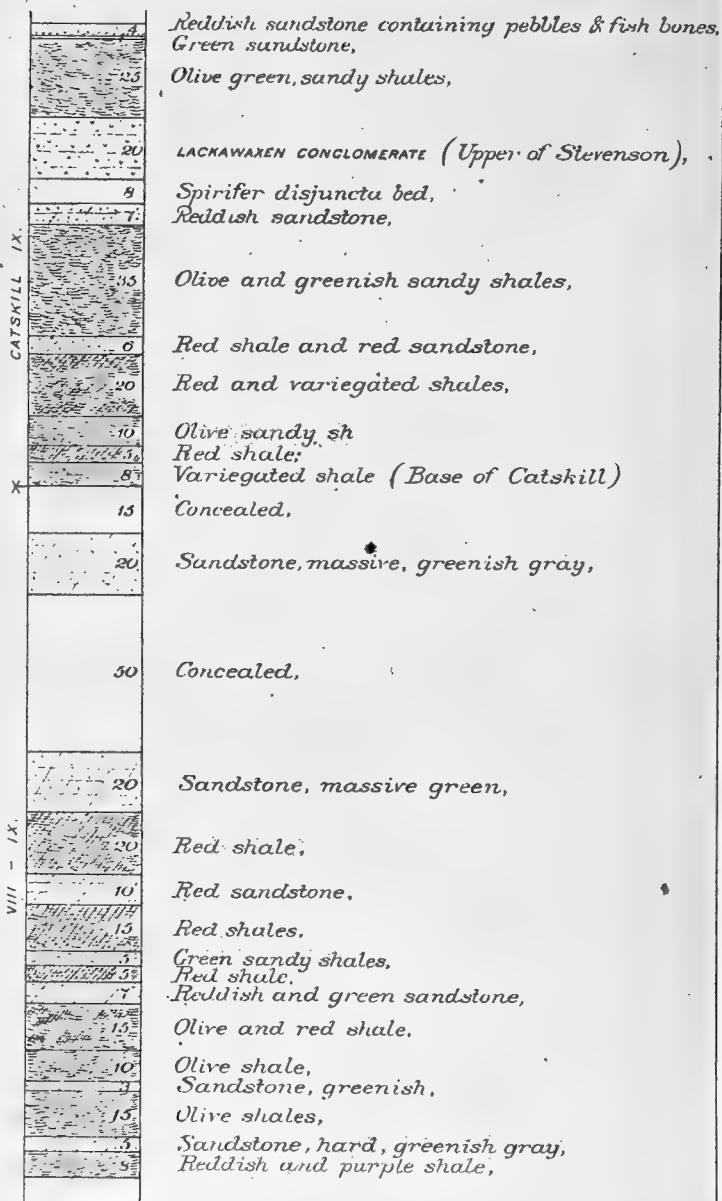 4 Reddish sandstone containing pebbles & fish bones,
Green sandstone,
25 Olive green, sandy shales,
20 LACKAWAXEN CONGLOMERATE (Upper of Stevenson),
8 Spirifer disjuncta bed,
7 Reddish sandstone,
CATSKILL IX.
35 Olive and greenish sandy shales,
6 Red shale and red sandstone,
20 Red and variegated shales,
10 Olive sandy sh
5 Red shale;
8 Variegated shale (Base of Catskill)
15 Concealed,
20 Sandstone, massive, greenish gray,
50 Concealed,
20 Sandstone, massive green,
VIII - IX.
20 Red shale,
10 Red sandstone,
15 Red shales,
5 Green sandy shales,
5 Red shale,
7 Reddish and green sandstone,
15 Olive and red shale,
10 Olive shale,
3 Sandstone, greenish,
15 Olive shales,
5 Sandstone, hard, greenish gray,
8 Reddish and purple shale,